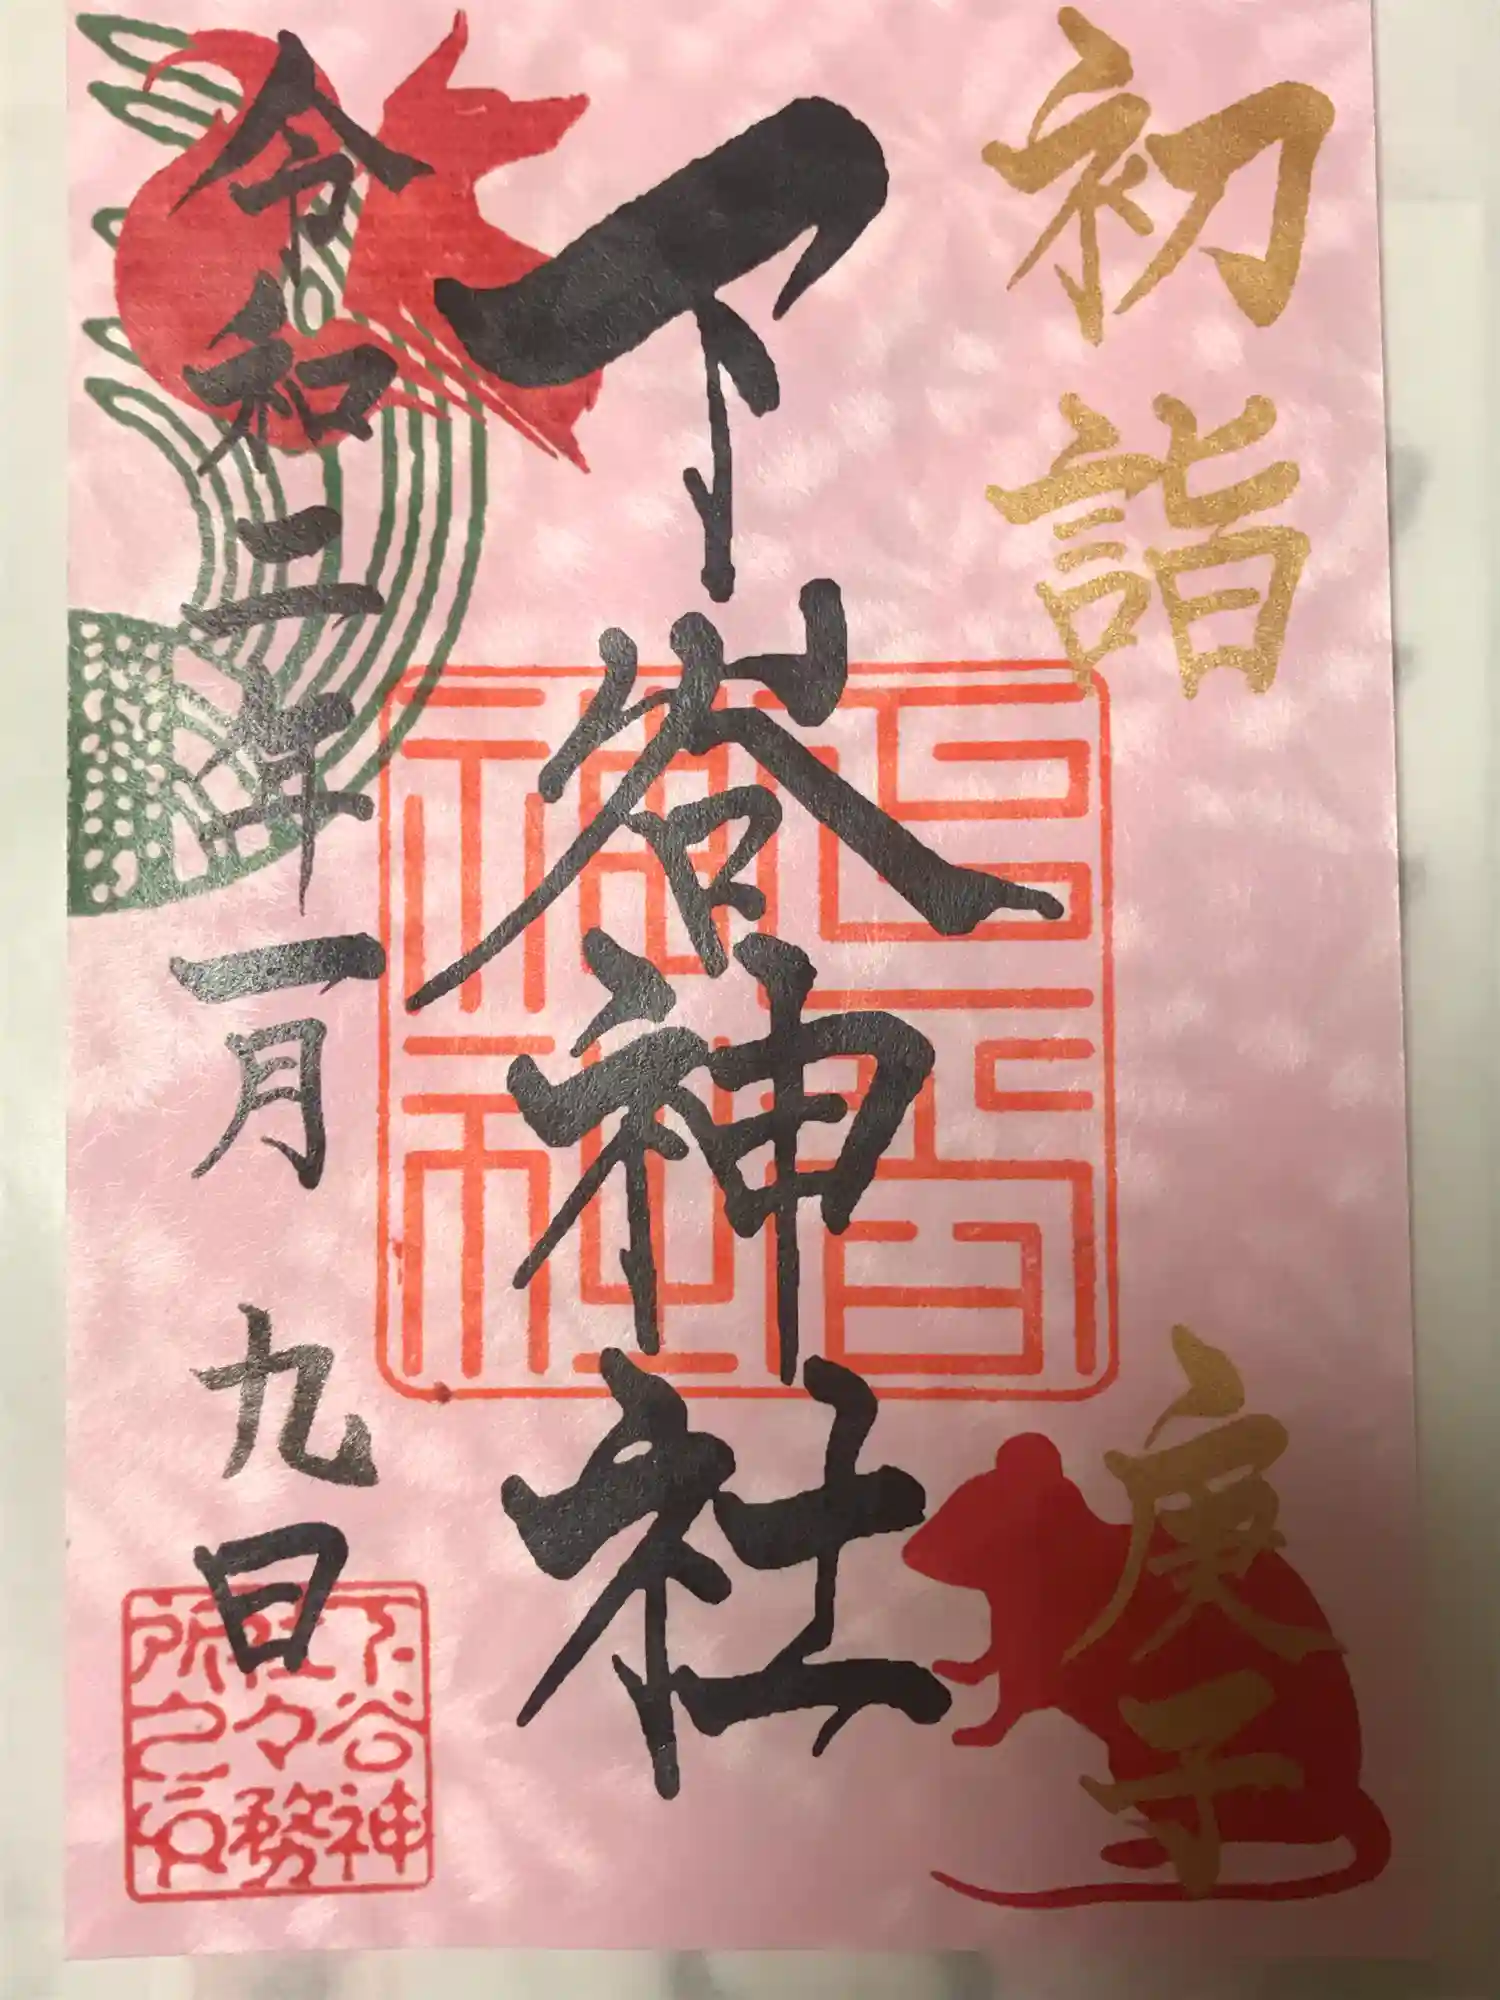 初詣
庚子
下谷神社
令和二年一月九日
下谷神
社々務
所之印